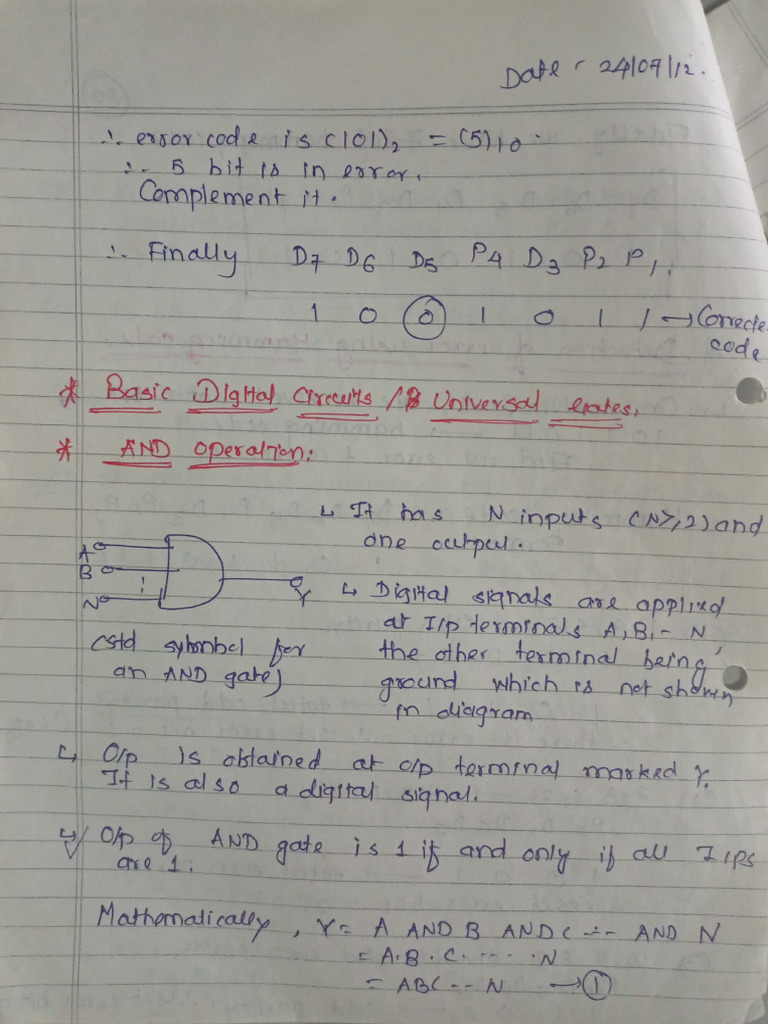 Date : 24/07/12.
∴ error code is (101)₂ = (5)₁₀.
∴ 5 bit is in error.
Complement it.
∴ Finally D7 D6 D5 P4 D3 P2 P1.
1 0 0 1 0 1 1 → Correcte
code
* Basic Digital Circuits / Universal Gates.
* AND Operation:
↳ It has N inputs (N≥2) and
one output.
A
B
N
Y
(std symbol for
an AND gate)
↳ Digital signals are applied
at I/p terminals A, B, - N,
the other terminal being
ground which is not shown
in diagram
↳ O/p is obtained at o/p terminal marked Y.
It is also a digital signal.
↳ O/p of AND gate is 1 if and only if all I/Ps
are 1.
Mathematically, Y = A AND B AND C --- AND N
= A.B.C. ---- .N
= ABC -- N → ①